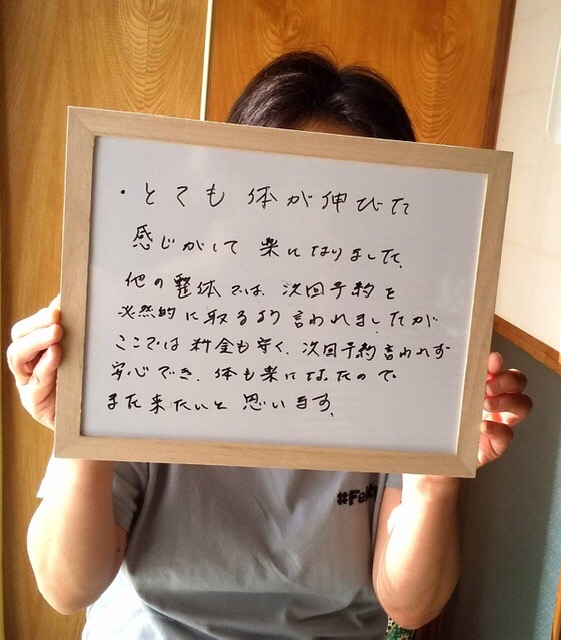 ・とても 体が伸びた
感じがして 楽になりました。
他の整体では、次回予約を
必然的に取るよう言われましたが
ここでは料金も安く、次回予約言われず
安心でき、体も楽になったので
また来たいと思います。